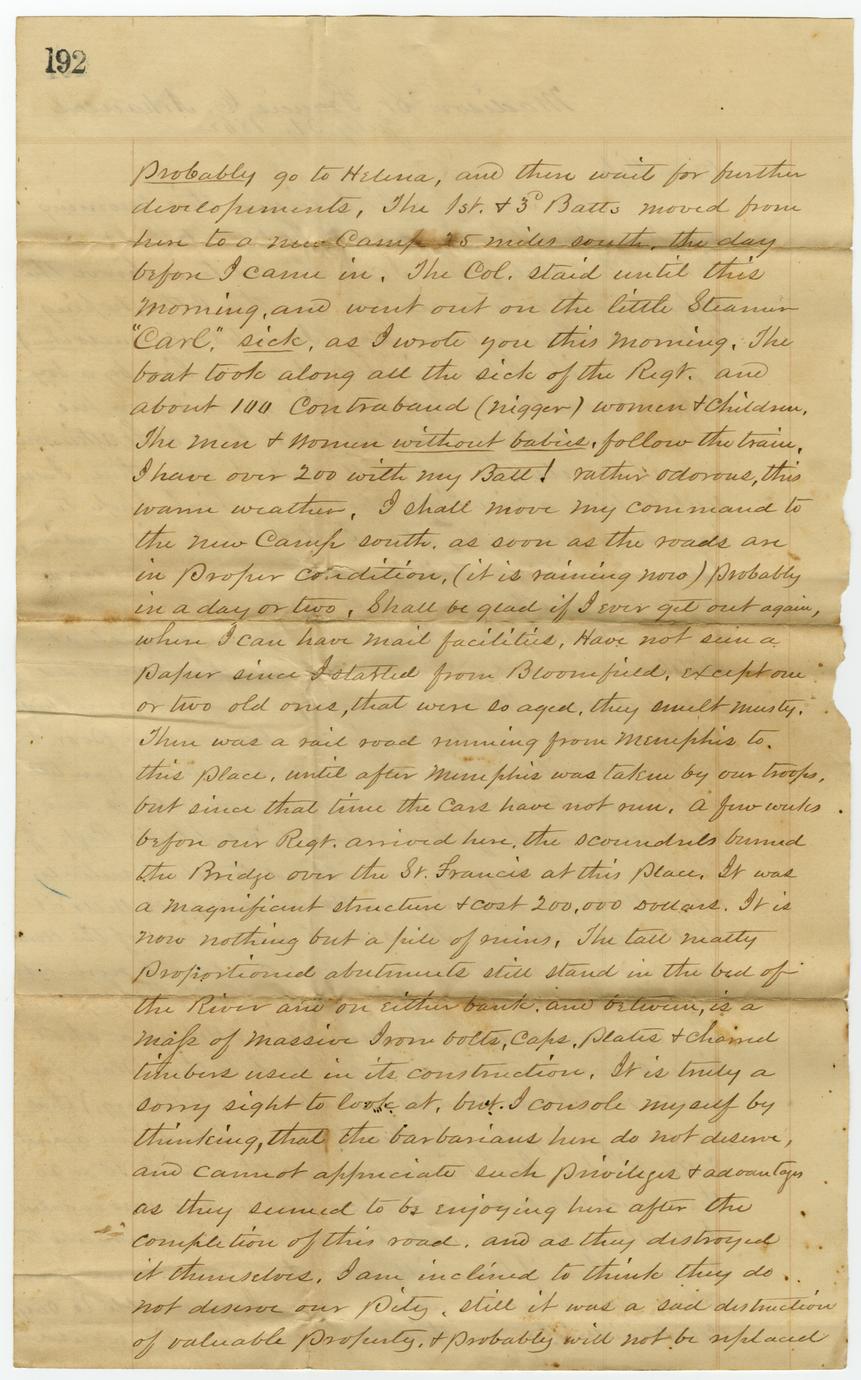 192
Probably go to Helena, and there wait for further
developements, The 1st. & 3d Batts moved from
here to a new Camp 25 miles south, the day
before I came in. The Col. staid until this
morning, and went out on the little Steamer
"Carl", sick, as I wrote you this morning. The
boat took along all the sick of the Regt. and
about 100 Contraband (nigger) women & Children.
The men & women without babies, follow the train.
I have over 200 with my Batt! rather odorous, this
warm weather. I shall move my command to
the new Camp south, as soon as the roads are
in Proper condition, (it is raining now) Probably
in a day or two. Shall be glad if I ever get out again,
where I can have mail facilities. Have not seen a
Paper since I started from Bloomfield, except one
or two old ones, that were so aged, they smelt musty.
There was a rail road running from Memphis to
this Place, until after Memphis was taken by our troops,
but since that time the Cars have not run. A few weeks
before our Regt. arrived here, the scoundrels burned
the Bridge over the St. Francis at this Place. It was
a magnificant structure & cost 200,000 Dollars. It is
now nothing but a pile of ruins. The tall neatly
Proportioned abutments still stand in the bed of
the River and on either bank, and between, is a
mass of massive Iron bolts, Caps, Plates & charred
timbers used in its construction. It is truly a
sorry sight to look at, but I console myself by
thinking, that the barbarians here do not deserve,
and cannot appreciate such Privileges & advantages
as they seemed to be enjoying here after the
completion of this road, and as they destroyed
it themselves, I am inclined to think they do
not deserve our Pity, still it was a sad distruction
of valuable Property, & Probably will not be replaced